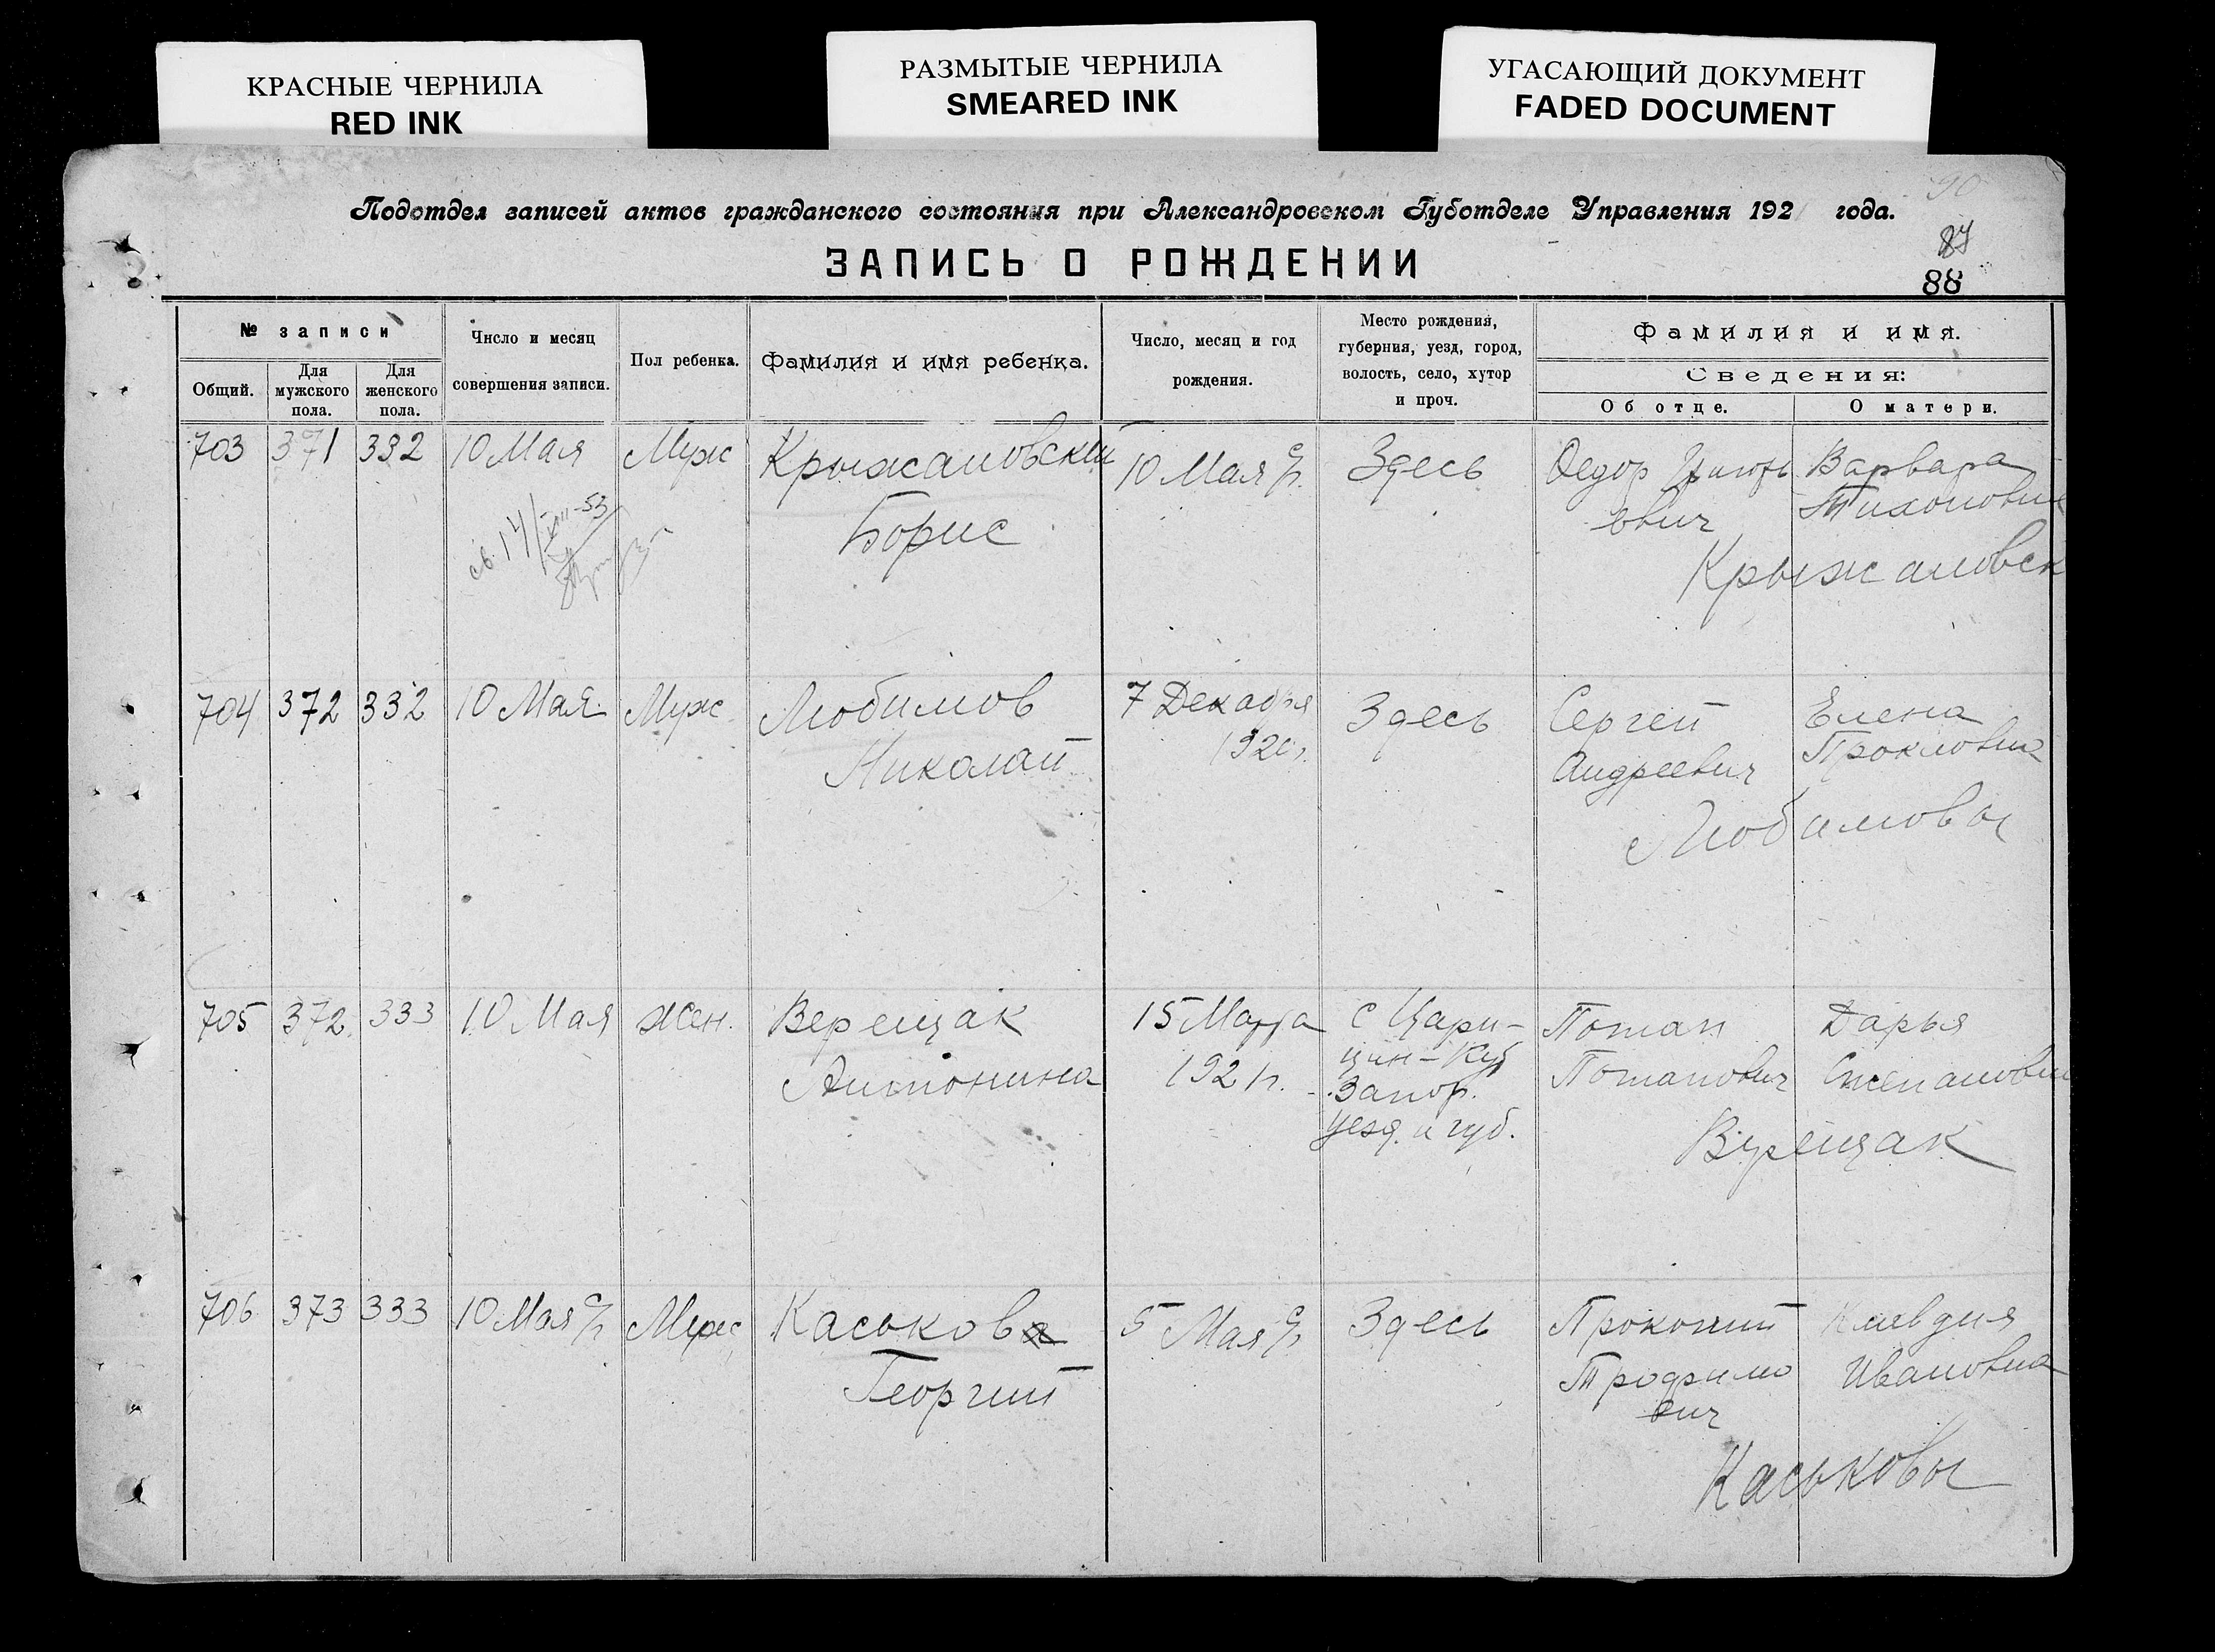 КРАСНЫЕ ЧЕРНИЛА
RED INK
РАЗМЫТЫЕ ЧЕРНИЛА
SMEARED INK
УГАСАЮЩИЙ ДОКУМЕНТ
FADED DOCUMENT
90
Подотдел записей актов гражданского состояния при Александровском Губотделе Управления 192 года.
87
ЗАПИСЬ О РОЖДЕНИИ
88
№ записи
Общий.
Для мужского пола.
Для женского пола.
Число и месяц совершения записи.
Пол ребенка.
Фамилия и имя ребенка.
Число, месяц и год рождения.
Место рождения, губерния, уезд, город, волость, село, хутор и проч.
Фамилия и имя.
Сведения:
Об отце.
О матери.
703 371 332 10 Мая Муж Крыжановский 10 Мая с/г Здесь Федор Варвара
Борис евич Тихоновна
Крыжановск
704 372 332 10 Мая Муж Любимов 7 Декабря Здесь Сергей Елена
Николай 1920г. Андреевич Прокловна
Любимовы
705 372 333 10 Мая Жен. Верещак 15 Марта с Цари- Потап Дарья
Антонина 1921г. цин-Кут Потапович Степановна
Запор.
уезд. и губ. Верещак
706 373 333 10 Мая с/г Муж Каськов 5 Мая с/г Здесь Прокопий Клавдия
Георгий Трофимо Ивановна
вич
Каськовы